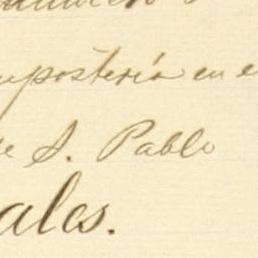 mposteria en e
e S. Pablo
ales.